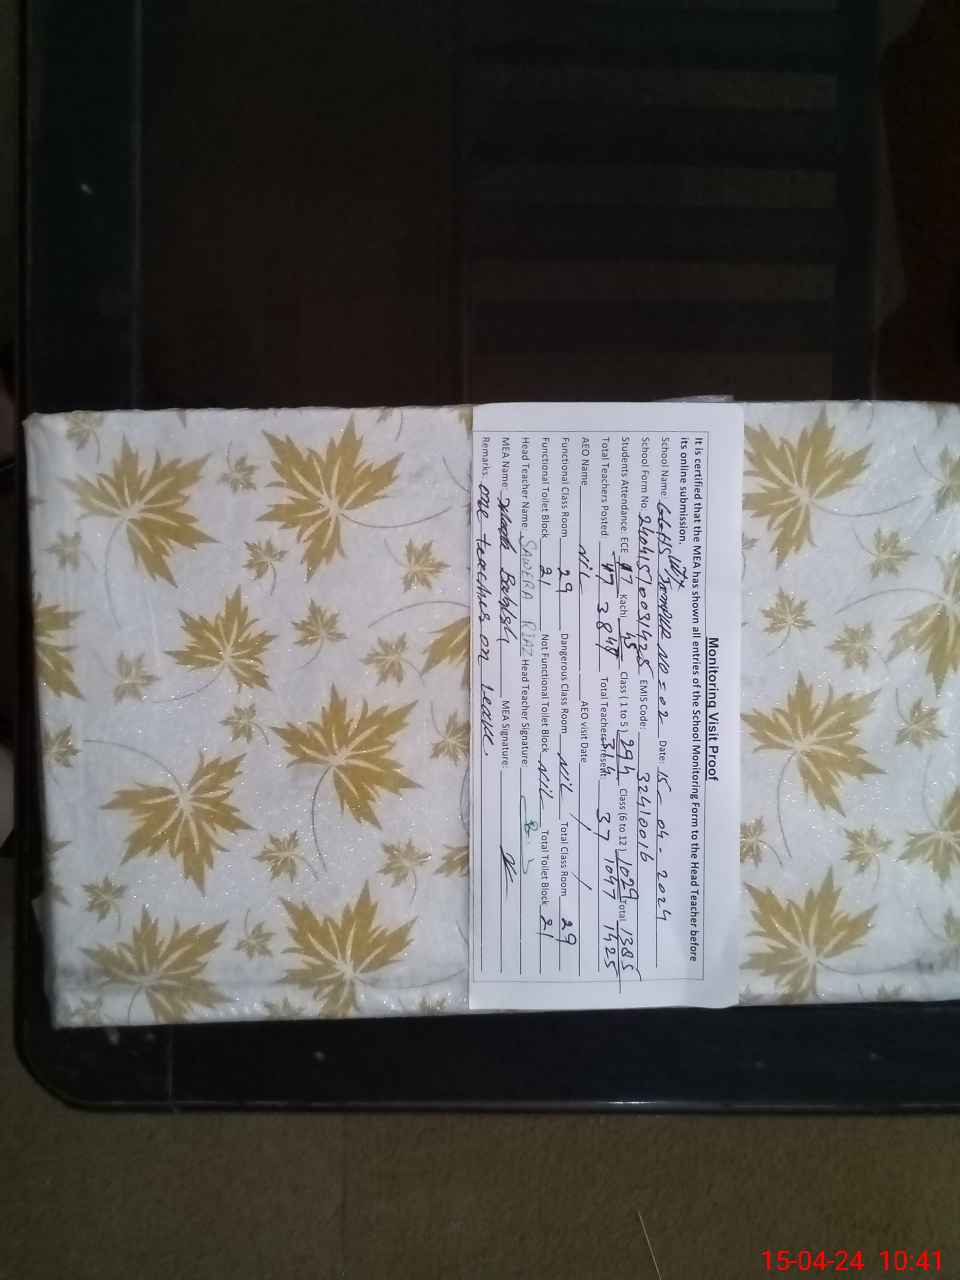 Monitoring Visit Proof
It is certified that the MEA has shown all entries of the School Monitoring Form to the Head Teacher before
its online submission.
School Name: GGHS JAMPUR NO = 02 Date: 15 - 04 - 2024
School Form No. 24041510031425 EMIS Code: 32410016
Students Attendance ECE 17 Kachi 45 Class ( 1 to 5 ) 294 Class (6 to 12 ) 1029 Total 1385
47 48 1047 1425
Total Teachers Posted: 38 Total Teachers Present: 37
AEO Name Nil AEO visit Date / /
Functional Class Room 29 Dangerous Class Room Nil Total Class Room 29
Functional Toilet Block 21 Not Functional Toilet Block Nil Total Toilet Block 21
Head Teacher Name SAWERA RIAZ Head Teacher Signature:
MEA Name: MEA Signature:
Remarks: one teacher on leave.
15-04-24 10:41